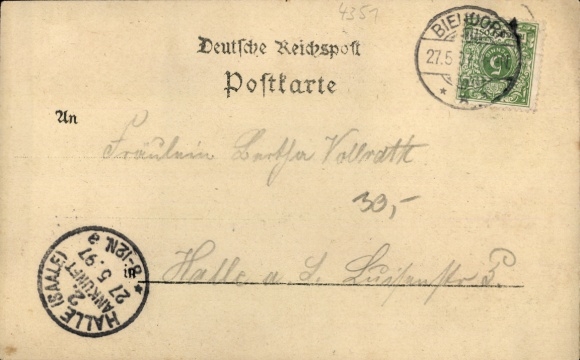 4351
BIENDORF
27.5
5
Deutsche Reichspost
Postkarte
An
Fräulein Bertha Vollrath
30,-
in Halle a. S. Luisenstr
HALLE (SAALE)
2
ANKUNFT
27 5. 97
8-12N. a